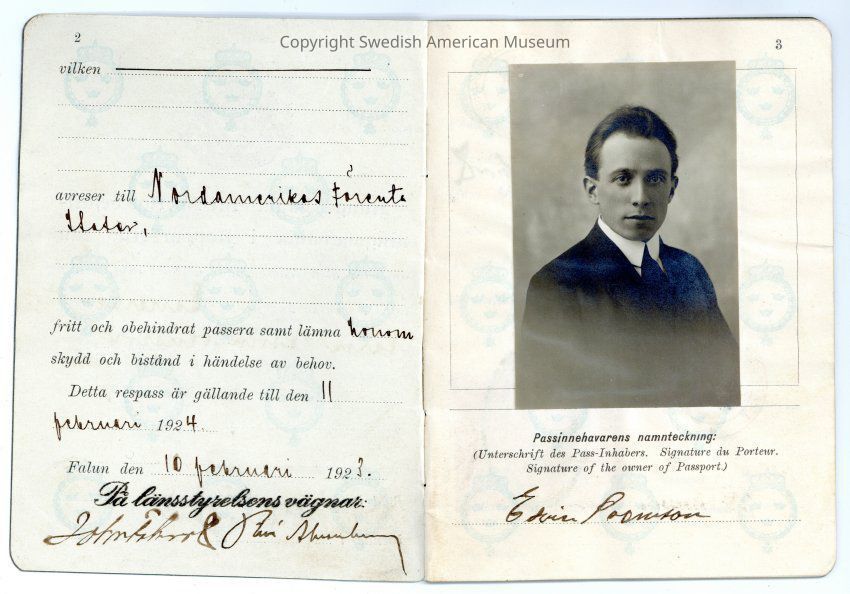 Copyright Swedish American Museum
2
vilken
avreser till Nordamerikas Förenta
Stater,
fritt och obehindrat passera samt lämna honom
skydd och bistånd i händelse av behov.
Detta respass är gällande till den 11
februari 1924.
Falun den 10 februari 1923.
På länsstyrelsens vägnar:
3
Passinnehavarens namnteckning:
(Unterschrift des Pass-Inhabers. Signature du Porteur.
Signature of the owner of Passport.)
Edvin